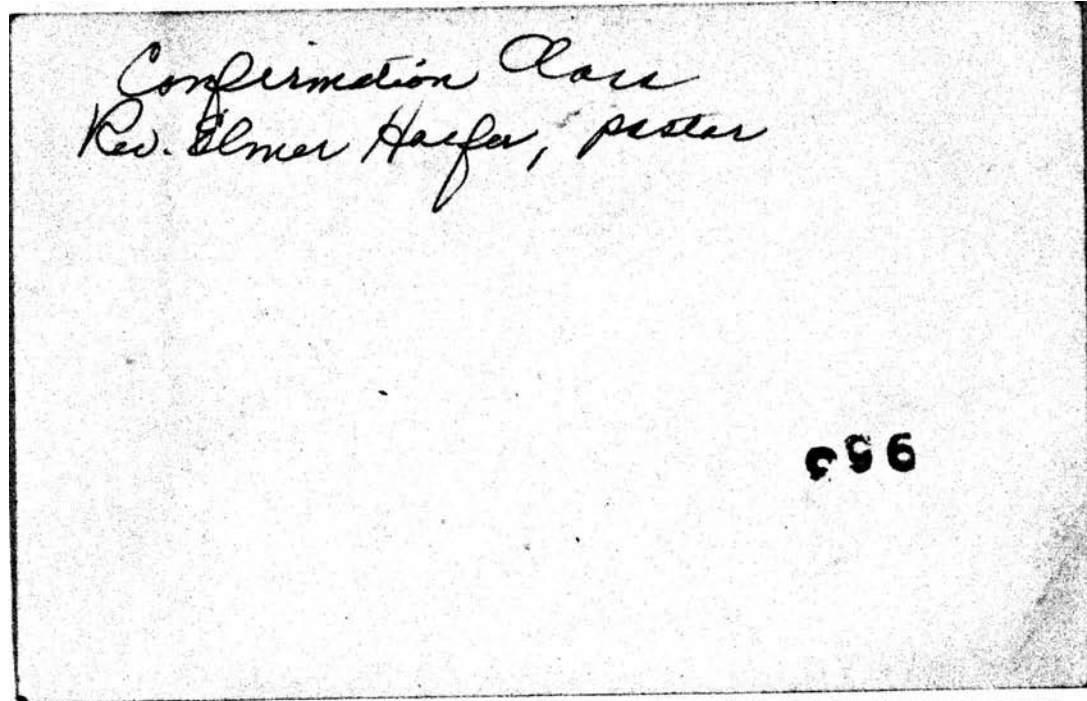 Confirmation Class
Rev. Elmer Haefer, pastor